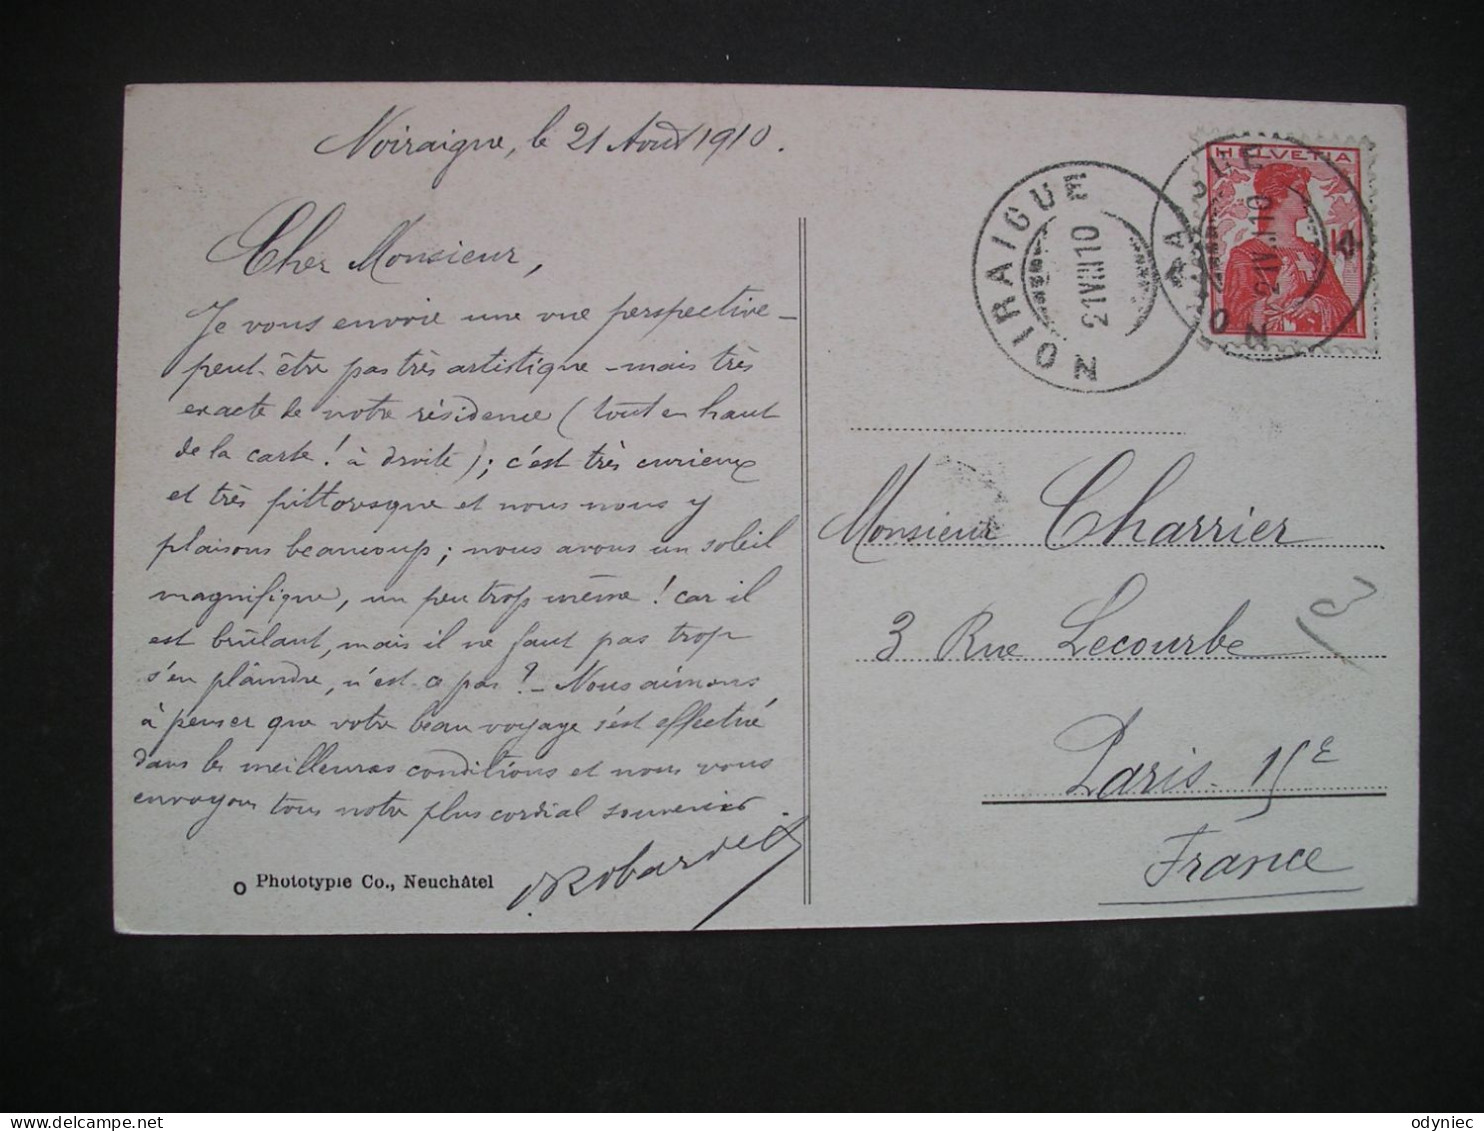 Noiraigue, le 21 Août 1910.
Cher Monsieur,
Je vous envoie une vue perspective –
peut-être pas très artistique – mais très
exacte de notre résidence (tout en haut
de la carte ! à droite) ; c'est très curieux
et très pittoresque et nous nous y
plaisons beaucoup ; nous avons un soleil
magnifique, un peu trop même ! car il
est brûlant, mais il ne faut pas trop
s'en plaindre, n'est-ce pas ? – Nous aimons
à penser que votre beau voyage s'est effectué
dans les meilleures conditions et nous vous
envoyons tous notre plus cordial souvenir
Robardet
Phototypie Co., Neuchâtel
HELVETIA
10
NOIRAIGUE
21 VIII 10
NOIRAIGUE
21 VIII 10
Monsieur Charrier
3 Rue Lecourbe
Paris. 15e
France
odyniec